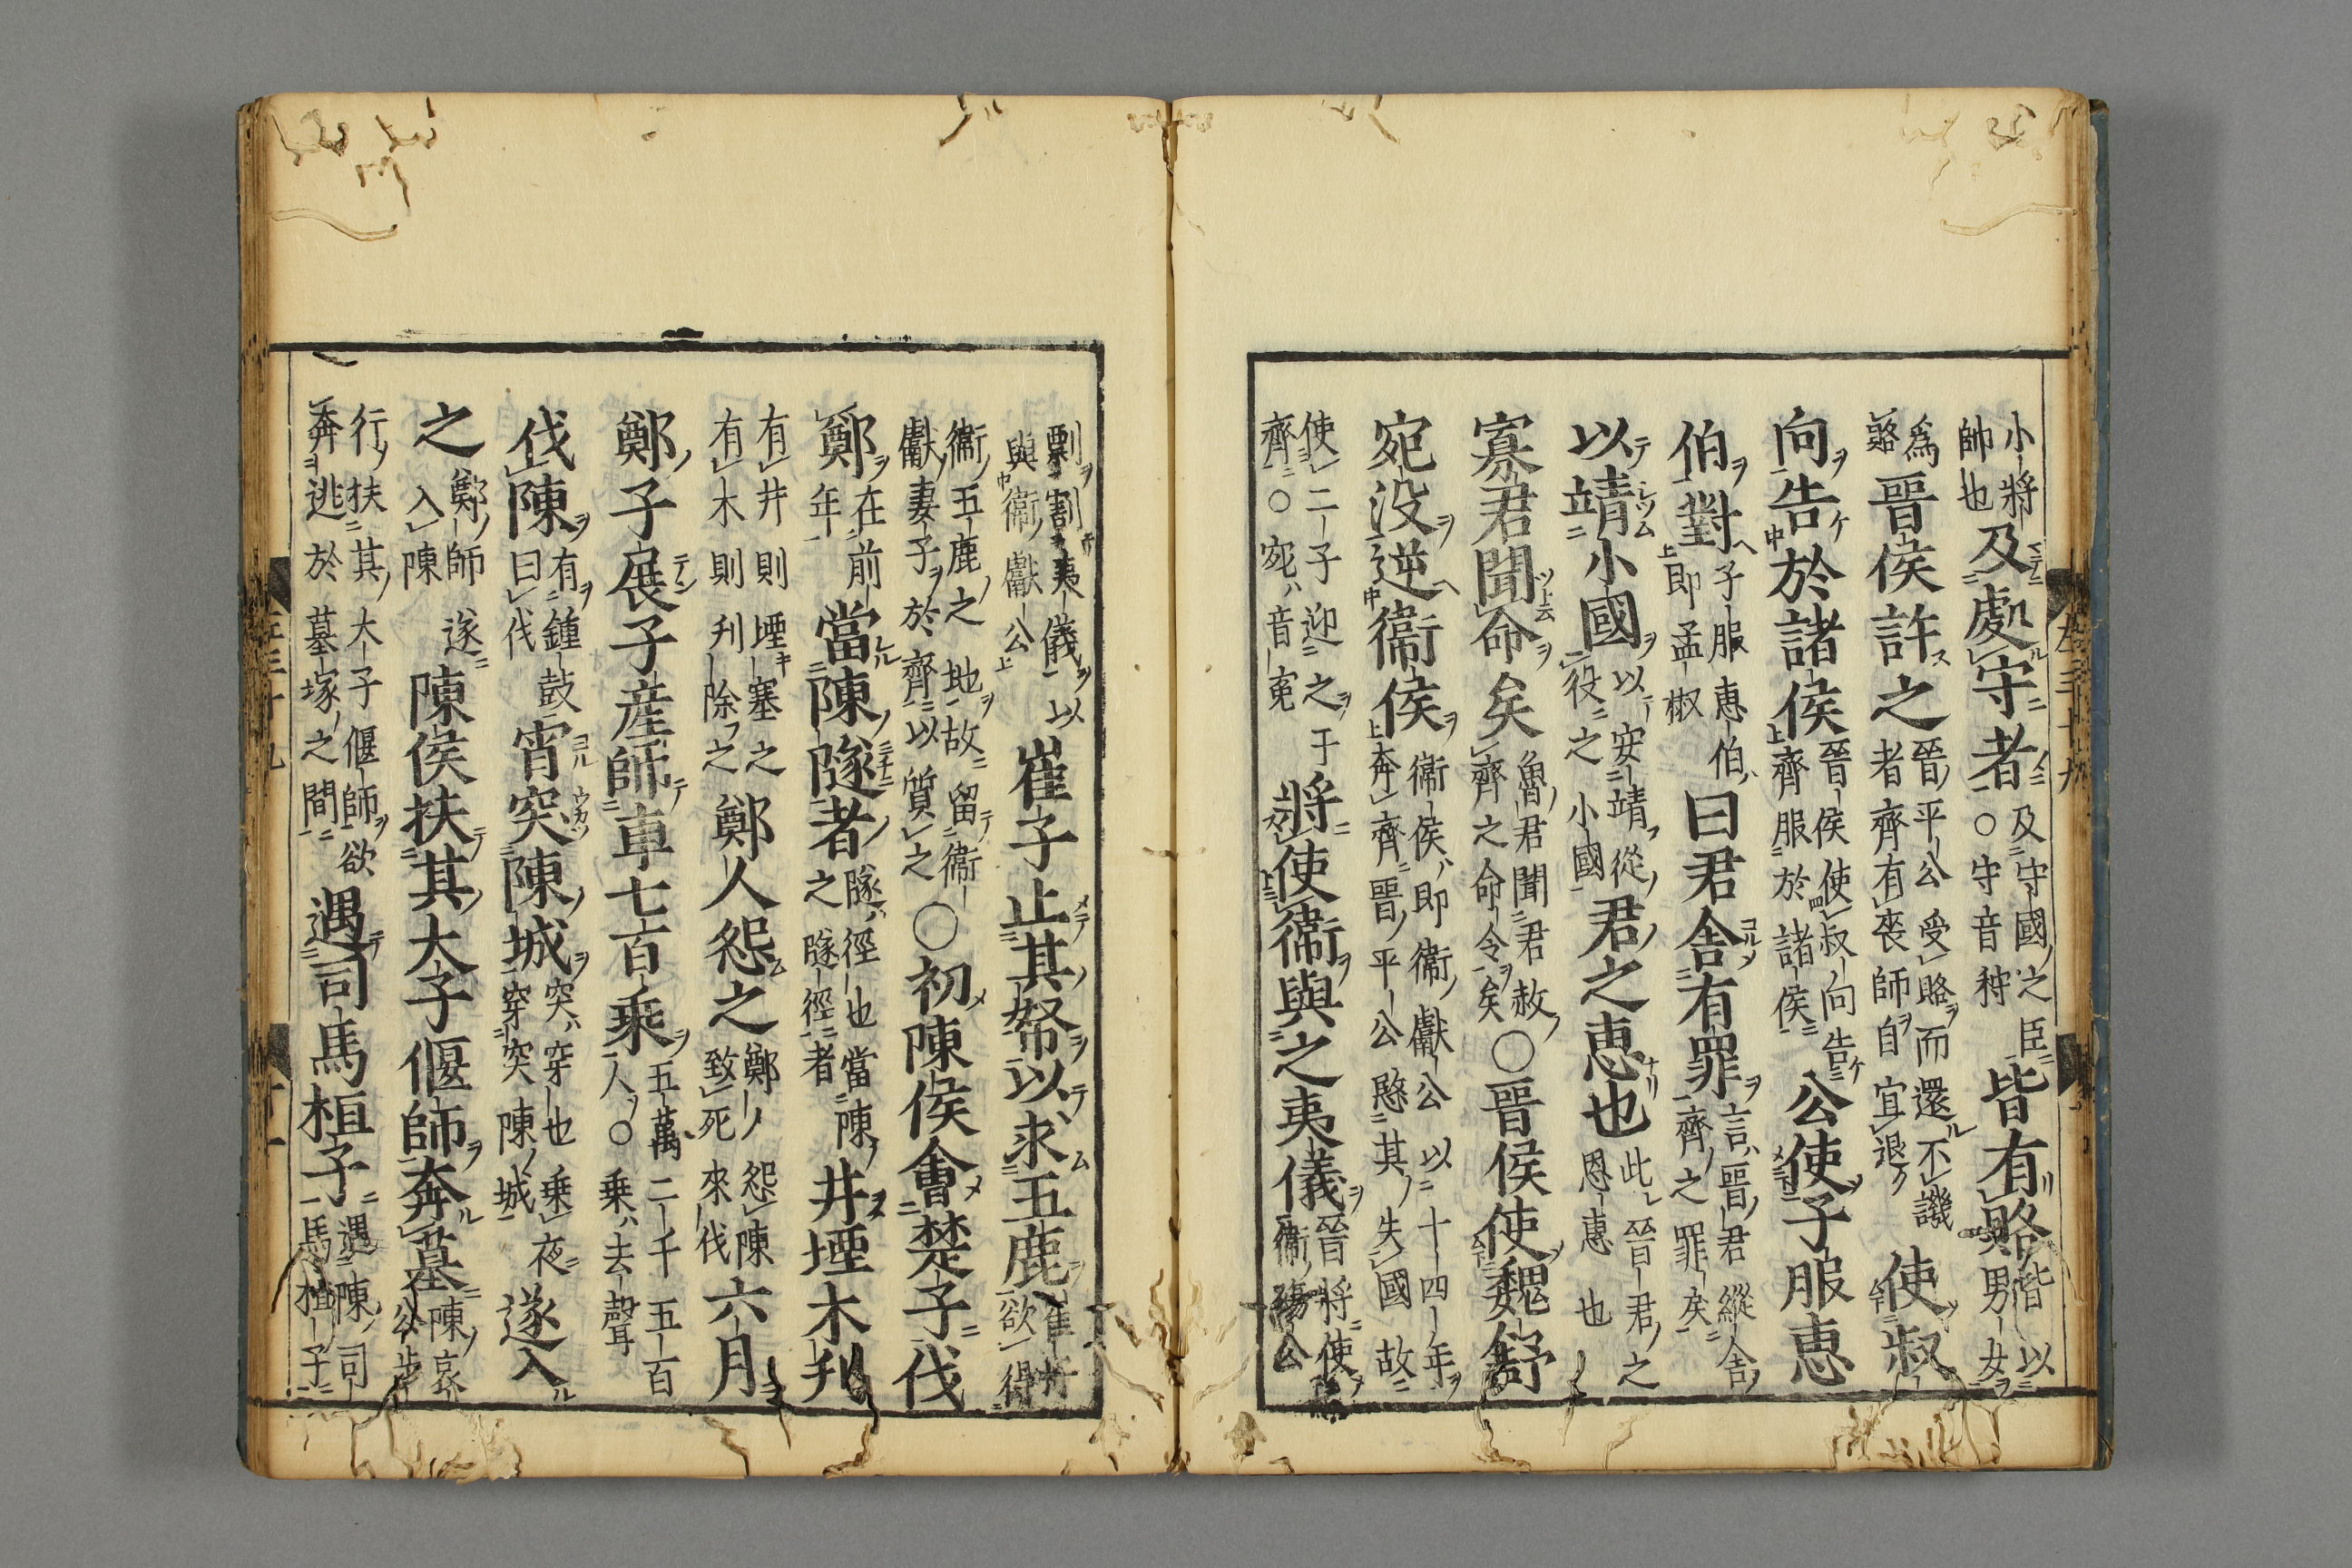 小將帥也及處守者及守國之臣○守音狩皆有賂皆以男女
爲賂晉侯許之晉平公受賂而還不譏者齊有喪師自宜退使叔
向告於諸侯晉侯使叔向告齊服於諸侯公使子服惠
伯對子服惠伯即孟椒曰君舍有罪言晉君縱舍齊之罪矣
以靖小國以安靖從役之小國君之惠也此晉君之恩惠也
寡君聞命矣魯君聞君赦齊之命令矣○晉侯使魏舒
宛没逆衞侯衞侯即衞獻公以十四年奔齊晉平公愍其失國故
使二子迎之于齊○宛音寃將使衞與之夷儀晉將使衞殤公
剽割夷儀以與衞獻公崔子止其帑以求五鹿崔杼欲得
衞五鹿之地故留衞獻妻子於齊以質之○初陳侯會楚子伐
鄭在前年當陳隧者隧徑也當陳之隧徑者井堙木刋
有井則堙塞之有木則刋除之鄭人怨之鄭人怨陳致死來伐六月
鄭子展子産師車七百乘五萬二千五百人○乘去聲
伐陳有鍾鼓曰伐宵突陳城突穿也乘夜穿突陳城遂入
之鄭師遂入陳陳侯扶其大子偃師奔墓陳哀公步
行扶其大子偃師欲奔逃於墓塚之間遇司馬桓子遇陳司馬桓子